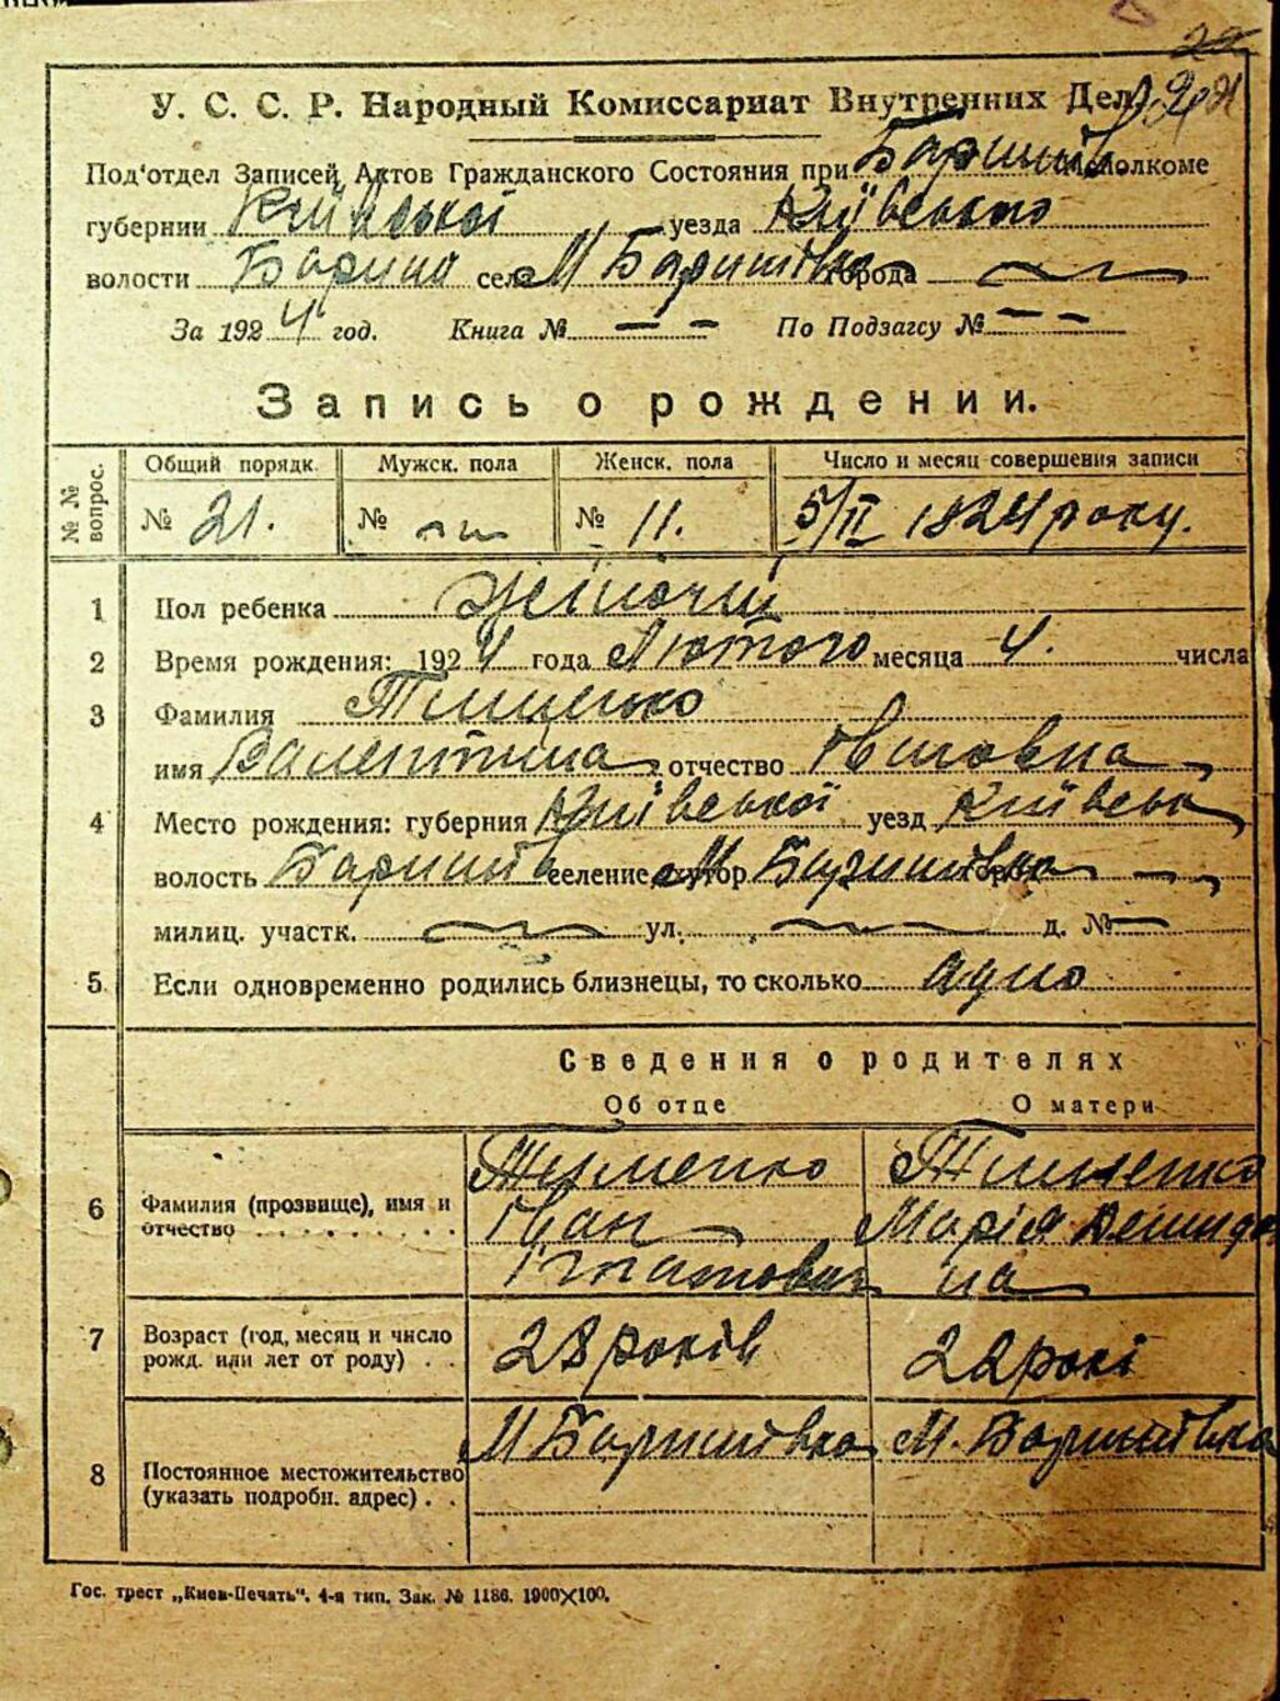 У. С. С. Р. Народный Комиссариат Внутренних Дел
Под‘отдел Записей Актов Гражданского Состояния при Баришів Исполкоме
губернии Київської уезда Київського
волости Бариш села М Баришівка города
За 1924 год. Книга № — – По Подзагсу № — –
Запись о рождении.
№ № вопрос. Общий порядк. Мужск. пола Женск. пола Число и месяц совершения записи
№ 21. № № 11. 5/II 1924 року.
1 Пол ребенка жіночий
2 Время рождения: 1924 года Лютого месяца 4. числа
3 Фамилия Тищенко
имя Валентина, отчество Івановна
4 Место рождения: губерния Київської уезд Київськ
волость Баришів селение, хутор М Баришівка город —
милиц. участк. — ул. — д. № —
5 Если одновременно родились близнецы, то сколько одно
Сведения о родителях
Об отце О матери
6 Фамилия (прозвище), имя и отчество . . . . . . . . .
Тищенко Іван Гнатович
Тищенко Марія Демидовна
7 Возраст (год, месяц и число рожд. или лет от роду) . .
28 років 22 рокі
8 Постоянное местожительство (указать подробн. адрес) . .
М Баришівка М. Баришівка
Гос. трест „Киев-Печать“. 4-я тип. Зак. № 1186. 1900×100.